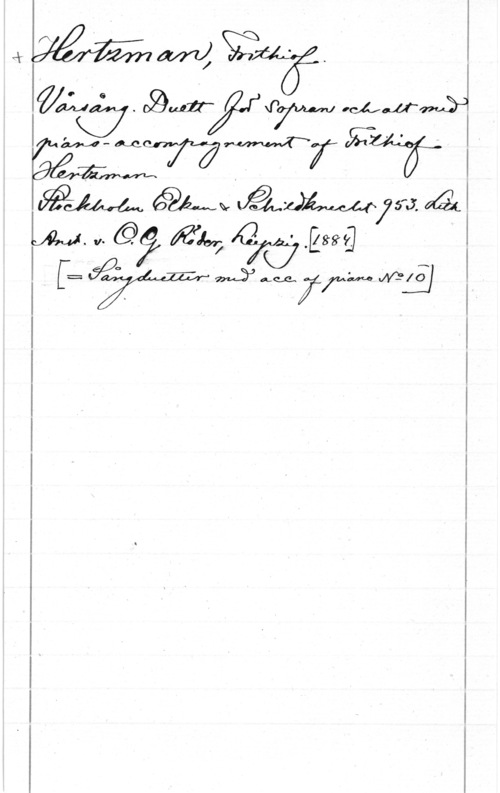 + Hertzman, Frithiof.
Vårsång. Duett för sopran och alt med
piano-accompagnement af Frithiof
Hertzman
Stockholm Elkan & Schildknecht 953. Lith
Anst. v. C. G. Röder, Leipzig. [1884]
[= Sångduetter med acc. af piano No 10]